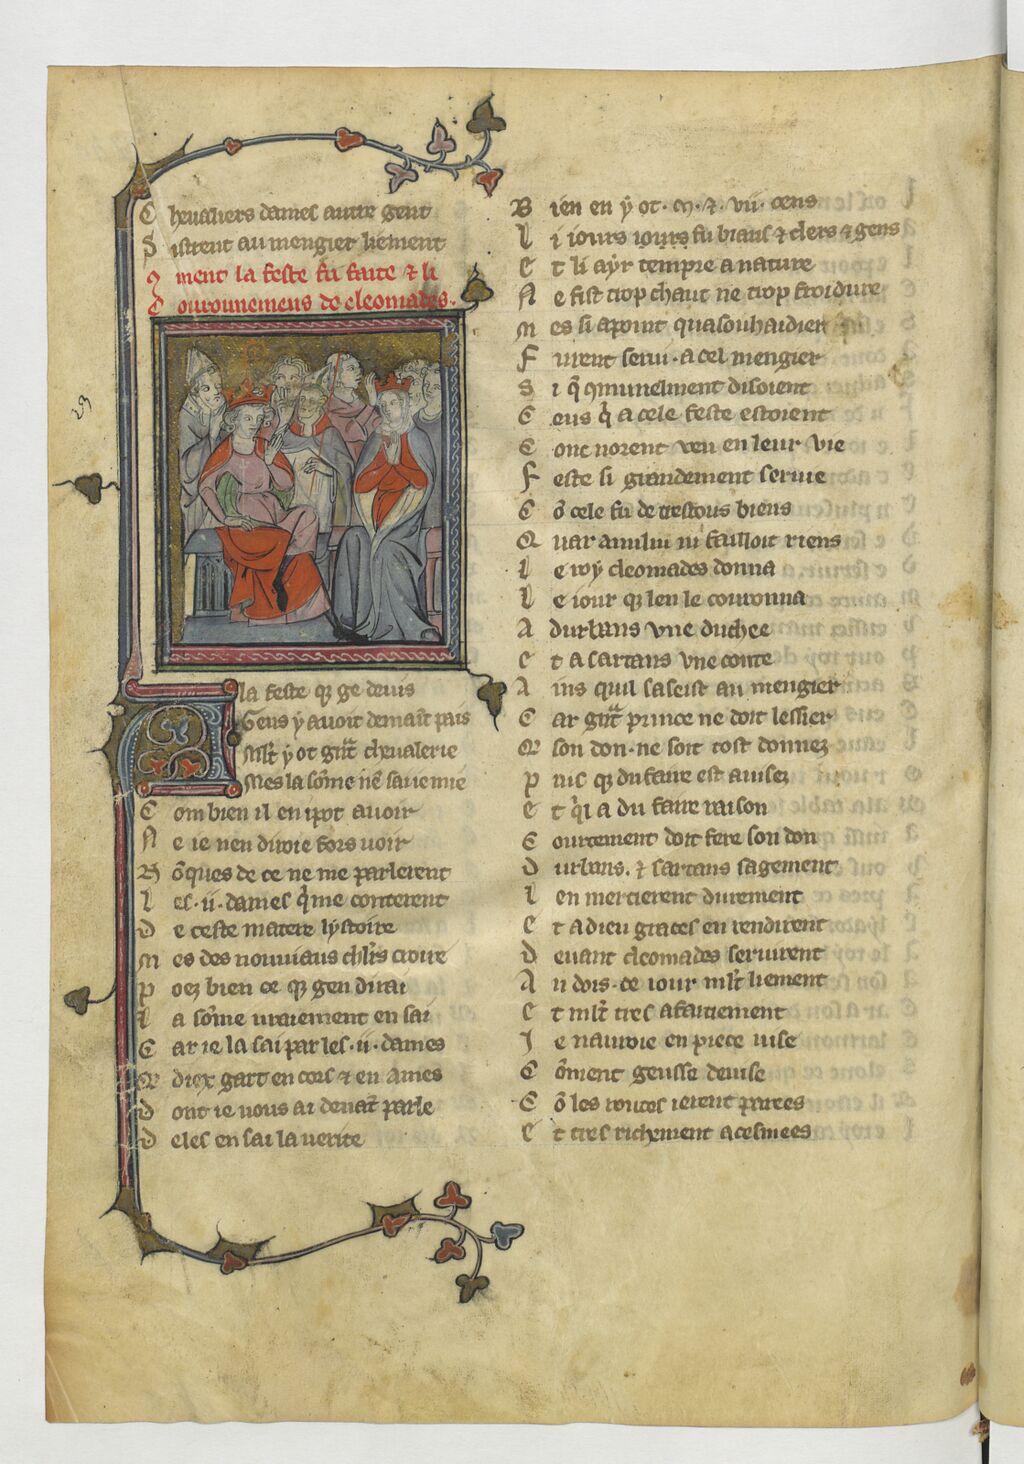 C heualiers dames autre gent
S istrent au mengier liement
ꝯ ment la feste fu faite ⁊ li
C ourounemens de cleomades.
A la feste q̄ ge deuis
Gens y auoit de maīt pais
Ml̄t y ot grāt cheualerie
Mes la sōme nē saueie mie
C om bien il en ipot auoir
N e ie nen diroie fors uoir
Ōques de ce ne me parlerent
L es .ii. dames q̇ me conterent
D e ceste matere lystoire
M es des nouuiaus chl̄rs croire
P oez bien ce q̄ gen dirai
L a sōme uraiement en sai
C ar ie la sai par les .ii. dames
Q̄ diex gart en cors ⁊ en ames
D ont ie uous ai deuāt parle
D eles en sai la uerite
B ien en y ot .m. ⁊ .vii. cens
L i iours iours fu biaus ⁊ clers ⁊ gens
E t li ayr tempre a nature
N e fist trop chaut ne trop froidure
M es si a point qua souhaidier
F urent serui a cel mengier
S i q̄ ꝯmunelment disoient
C eus q̇ a cele feste estoient
C onc norent veu en leur vie
F este si grandement seruie
C ō cele fu de trestous biens
Q uar a nului ni failloit riens
L e roy cleomades donna
L e iour q̄ len le couronna
A durbans vne duchee
E t a sartans vne conte
A ins quil saseist au mengier
C ar grāt prince ne doit lessier
Q̄ son don ne soit tost donnez
P uis q̄ du faire est auisez
E t q̇ a du faire raison
C ourtement doit fere son don
D urbans. ⁊ sartans sagement
L en mercierent durement
E t a dieu graces en rendirent
D euant cleomades seruirent
A u dois ce iour ml̄t liement
E t ml̄t tres afaitiement
I e nauroie en piece uise
C ōment geusse deuise
C ō les routes ierent parees
E t tres richement acesmees